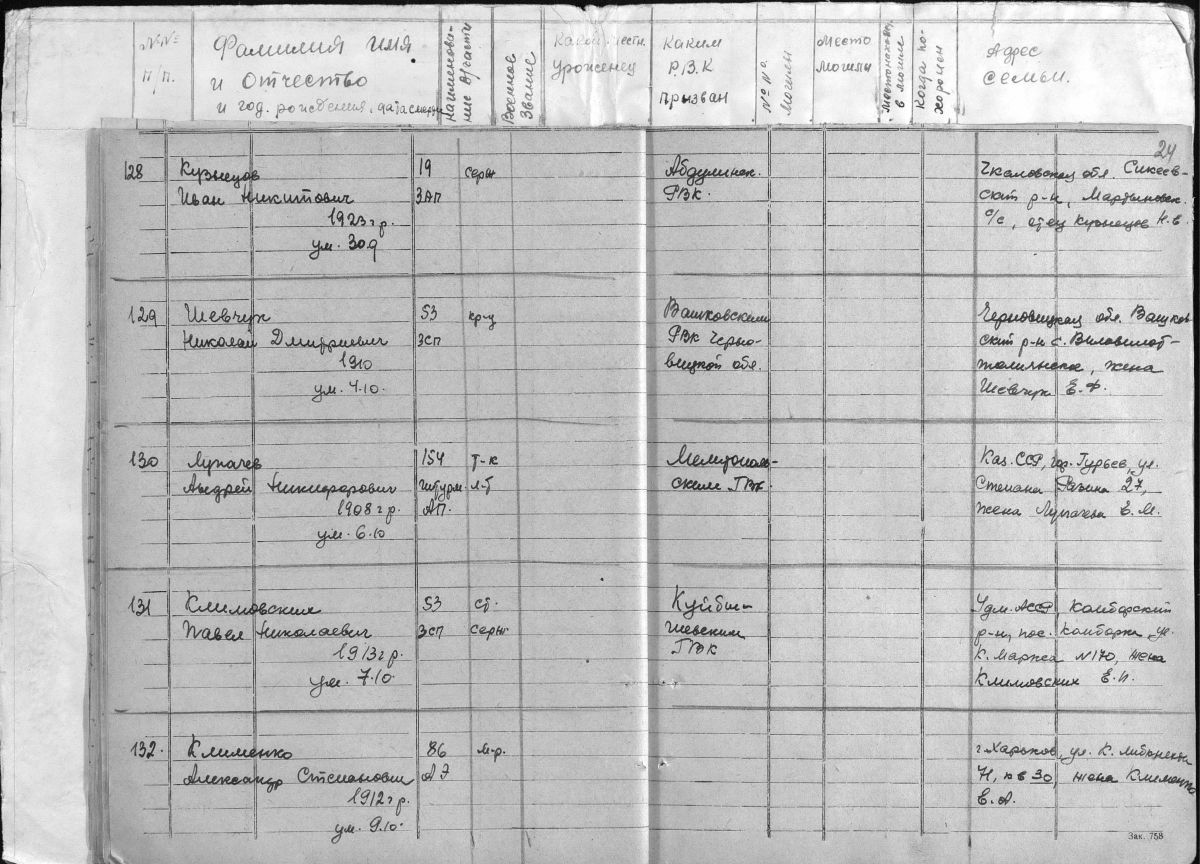 №№ п/п.
Фамилия имя и отчество и год. рождения, дата смерти
наименование в/части
Военное звание
Какой местн. уроженец
Каким Р.В.К призван
№№ могилы
Место могилы
в могиле
Когда похоронен
Адрес семьи.
24
128 Кузнецов 19 серж Абдулинск. Чкаловская обл.
Иван Никитович ЗАП РВК. ский р-н, Мартыновск.
1923 г р. с/с, отец Кузнецов Н.
ум. 30.9
129 Шевчук 53 кр-ц Вашковским Черновицкая обл. Вашков-
Николай Дмитриевич ЗСП РВК Черно- ский р-н с.
1910 вицкой обл. жена
ум. 4.10 Шевчук Е.Ф.
130 Лупачев 154 т-к Мелитополь- Каз. ССР, гор. Гурьев, ул.
Андрей Никифорович штурм. л-т ским ГВК. Степана Разина 27,
1908 г р. АП. жена Лупачева Е.М.
ум. 6.10
131 Климовских 53 ст. Куйбы- Удм. АССР Камбарский
Павел Николаевич ЗСП серж шевским р-н, пос. Камбарка ул.
1913 г р. ГВК К. Маркса №170, жена
ум. 7.10. Климовских Е.И.
132. Клименко 86 м-р. г. Харьков, ул. К. Либкнехта
Александр Степанович АЭ кв 30, жена Клименко
1912 г Е.А.
ум. 9.10.
Зак. 758